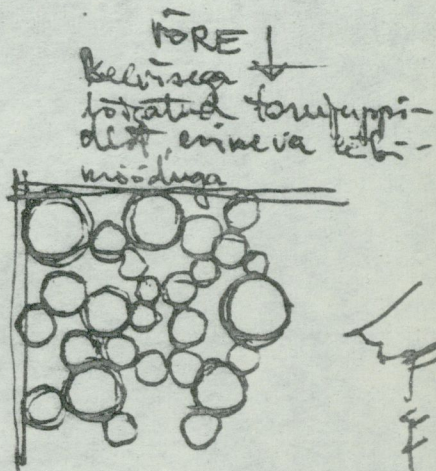 VÕRE
keevisega
torujuppi-
dest, erineva läbi-
mõõduga